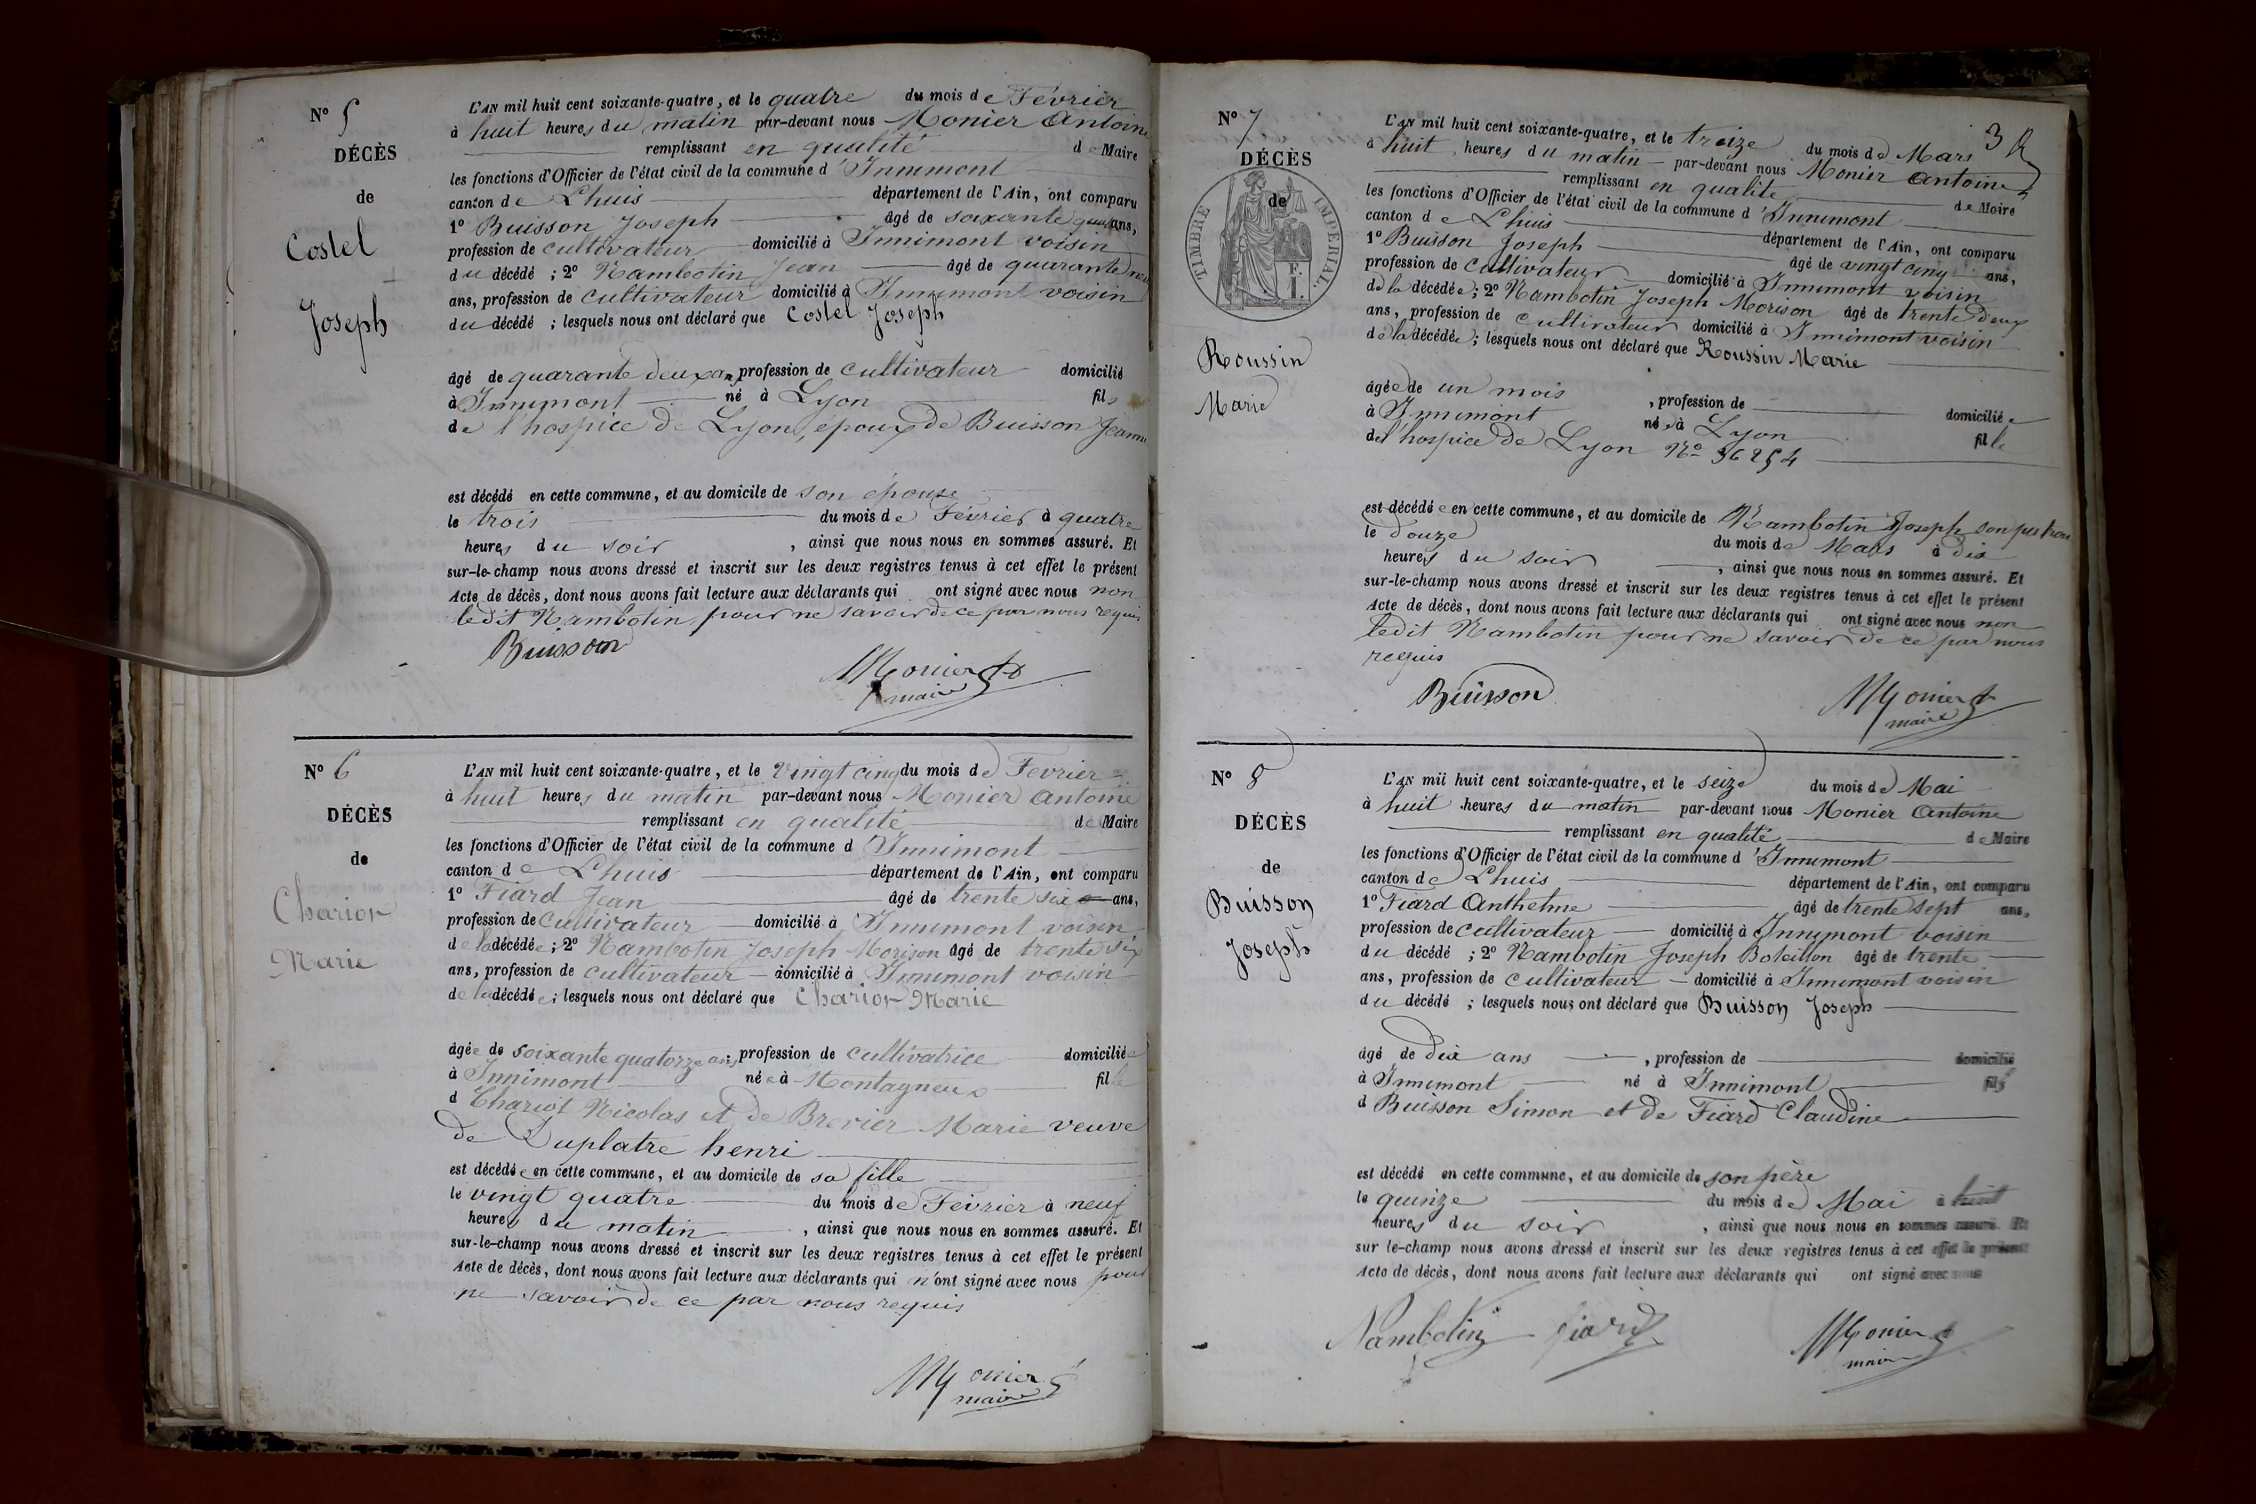 N° 5
DÉCÈS
de
Costel
Joseph
L'AN mil huit cent soixante-quatre, et le quatre du mois de Février
à huit heures du matin par-devant nous Monier Antoine
remplissant en qualité de Maire
les fonctions d'Officier de l'état civil de la commune d'Innimont
canton de Lhuis département de l'Ain, ont comparu
1° Buisson Joseph âgé de soixante ans,
profession de cultivateur domicilié à Innimont voisin
du décédé ; 2° Nambotin Jean âgé de quarante
ans, profession de cultivateur domicilié à Innimont voisin
du décédé ; lesquels nous ont déclaré que Costel Joseph
âgé de quarante deux ans profession de cultivateur domicilié
à Innimont né à Lyon fils
de l'hospice de Lyon, epoux de Buisson Jeanne
est décédé en cette commune, et au domicile de son épouse
le trois du mois de Février à quatre
heures du soir , ainsi que nous nous en sommes assuré. Et
sur-le-champ nous avons dressé et inscrit sur les deux registres tenus à cet effet le présent
Acte de décès, dont nous avons fait lecture aux déclarants qui ont signé avec nous non
ledit Nambotin pour ne savoir de ce par nous requis
Buisson
Monier
maire
N° 6
DÉCÈS
de
Charior
Marie
L'AN mil huit cent soixante-quatre, et le vingt cinq du mois de Fevrier
à huit heures du matin par-devant nous Monier Antoine
remplissant en qualité de Maire
les fonctions d'Officier de l'état civil de la commune d Innimont
canton de Lhuis département de l'Ain, ont comparu
1° Fiard Jean âgé de trente six ans,
profession de cultivateur domicilié à Innimont voisin
de la décédée ; 2° Nambotin Joseph Morison âgé de trente six
ans, profession de cultivateur domicilié à Innimont voisin
de la décédée ; lesquels nous ont déclaré que Charior Marie
âgée de soixante quatorze ans, profession de cultivatrice domiciliée
à Innimont née à Montagneux fille
d Chariot Nicolas et de Brevier Marie veuve
de Duplatre henri
est décédée en cette commune, et au domicile de sa fille
le vingt quatre du mois de Février à neuf
heures du matin , ainsi que nous nous en sommes assuré. Et
sur-le-champ nous avons dressé et inscrit sur les deux registres tenus à cet effet le présent
Acte de décès, dont nous avons fait lecture aux déclarants qui n'ont signé avec nous pour
ne savoir de ce par nous requis
Monier
maire
3
N° 7
DÉCÈS
de
TIMBRE IMPERIAL
F.
I.
Roussin
Marie
L'AN mil huit cent soixante-quatre, et le treize du mois de Mars
à huit heures du matin par-devant nous Monier Antoine
remplissant en qualité de Maire
les fonctions d'Officier de l'état civil de la commune d'Innimont
canton de Lhuis département de l'Ain, ont comparu
1° Buisson Joseph âgé de vingt cinq ans,
profession de cultivateur domicilié à Innimont voisin
de la décédée ; 2° Nambotin Joseph Morison âgé de trente deux
ans, profession de cultivateur domicilié à Innimont voisin
de la décédée ; lesquels nous ont déclaré que Roussin Marie
âgée de un mois , profession de domiciliée
à Innimont née à Lyon fille
de l'hospice de Lyon N° 36254
est décédée en cette commune, et au domicile de Nambotin Joseph son
le douze du mois de Mars à dix
heures du soir , ainsi que nous nous en sommes assuré. Et
sur-le-champ nous avons dressé et inscrit sur les deux registres tenus à cet effet le présent
Acte de décès, dont nous avons fait lecture aux déclarants qui ont signé avec nous non
ledit Nambotin pour ne savoir de ce par nous
requis
Buisson
Monier
maire
N° 8
DÉCÈS
de
Buisson
Joseph
L'AN mil huit cent soixante-quatre, et le seize du mois de Mai
à huit heures du matin par-devant nous Monier Antoine
remplissant en qualité de Maire
les fonctions d'Officier de l'état civil de la commune d'Innimont
canton de Lhuis département de l'Ain, ont comparu
1° Fiard Anthelme âgé de trente sept ans,
profession de cultivateur domicilié à Innimont voisin
du décédé ; 2° Nambotin Joseph âgé de trente
ans, profession de cultivateur domicilié à Innimont voisin
du décédé ; lesquels nous ont déclaré que Buisson Joseph
âgé de dix ans , profession de domicilié
à Innimont né à Innimont fils
d Buisson Simon et de Fiard Claudine
est décédé en cette commune, et au domicile de son père
le quinze du mois de Mai à huit
heures du soir , ainsi que nous nous en sommes assuré. Et
sur le-champ nous avons dressé et inscrit sur les deux registres tenus à cet effet le présent
Acte de décès, dont nous avons fait lecture aux déclarants qui ont signé avec nous
Nambotin fiard
Monier
maire